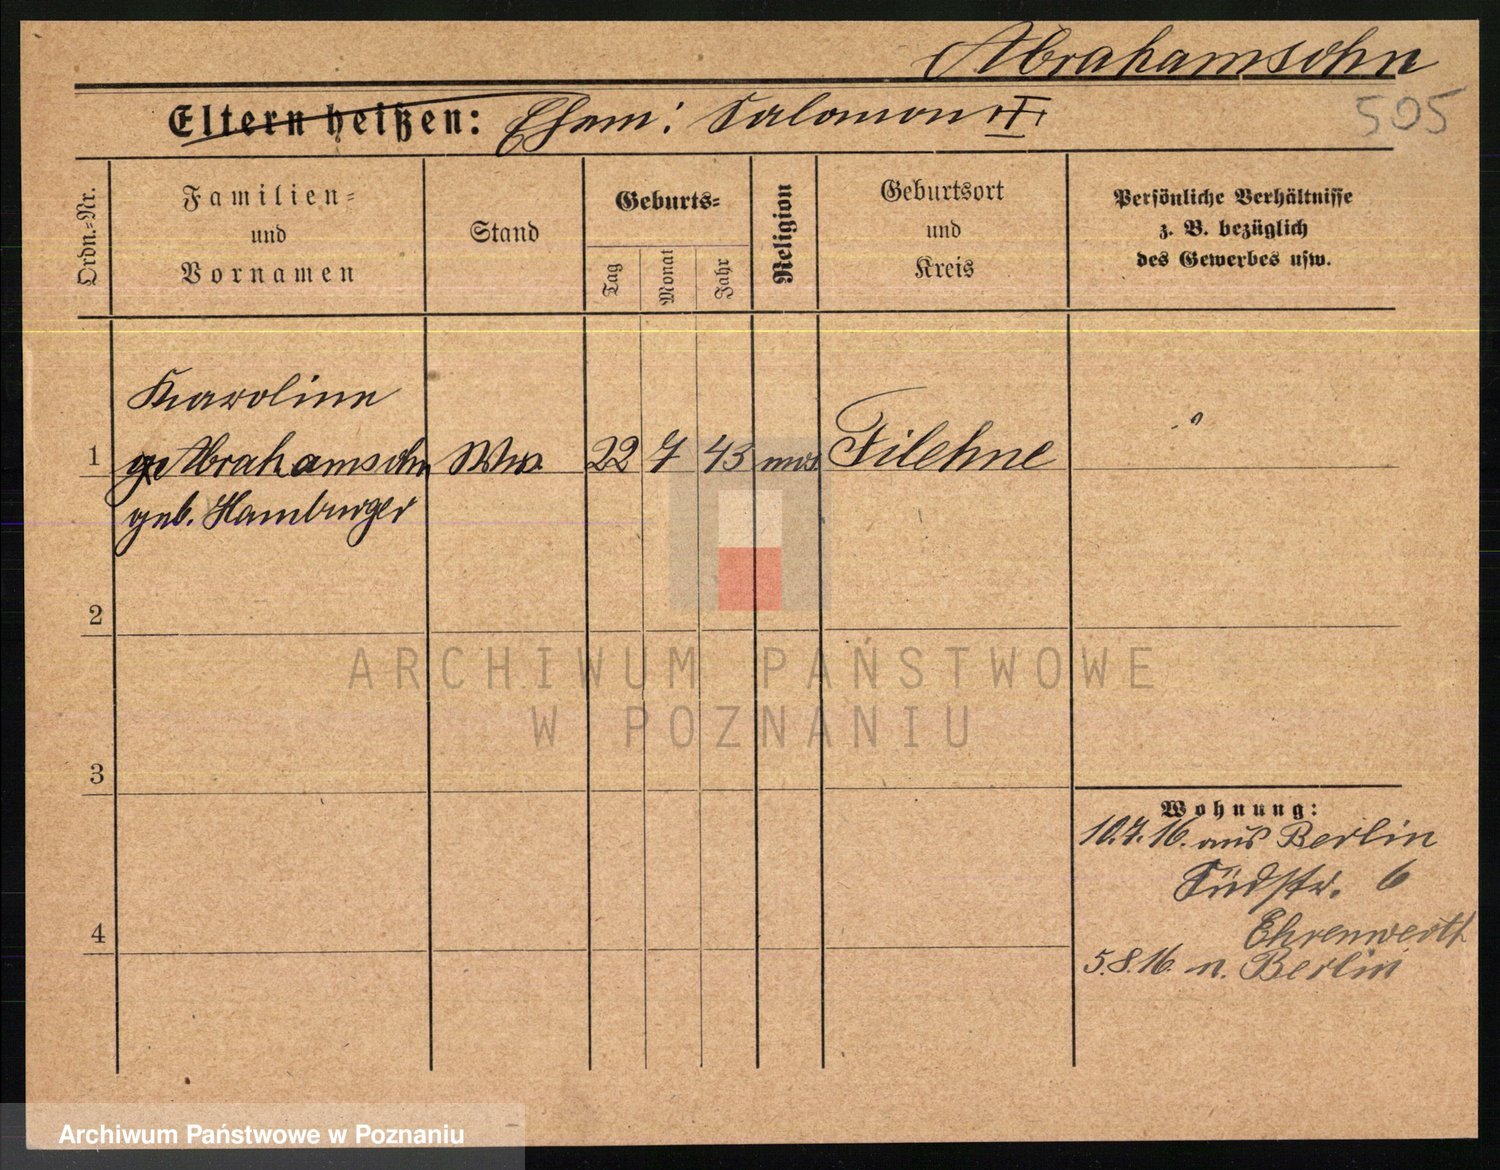 Abrahamsohn
505
Eltern heißen: Ehem: Salomon †
Ordn.-Nr.
Familien-
und
Vornamen
Stand
Geburts-
Tag
Monat
Jahr
Religion
Geburtsort
und
Kreis
Persönliche Verhältnisse
z. B. bezüglich
des Gewerbes usw.
Karoline
1 Abrahamsohn Ww. 22 7 43 mos. Filehne
geb. Hamburger
2
3
4
Wohnung:
10.7.16. aus Berlin
Südstr. 6
Ehrenwerth
5.8.16. n. Berlin
ARCHIWUM PAŃSTWOWE
W POZNANIU
Archiwum Państwowe w Poznaniu